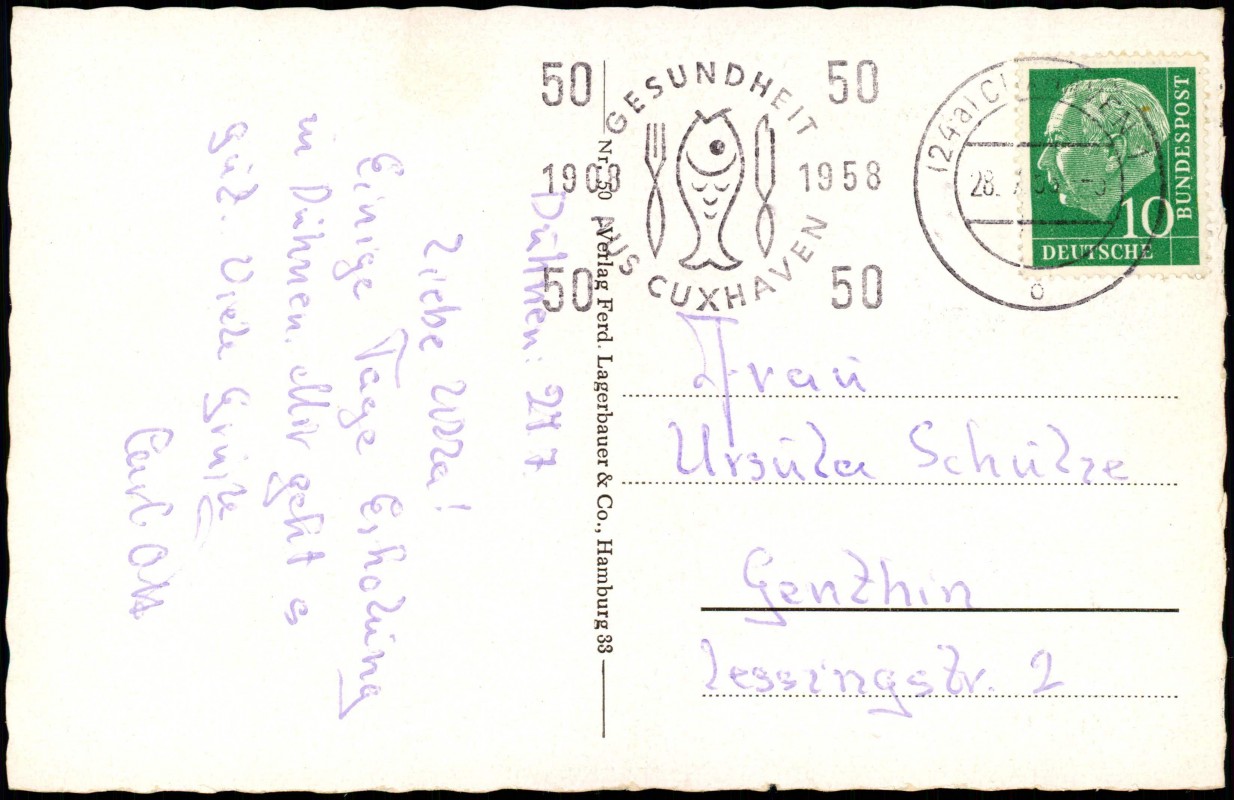 Duhnen: 27.7
Liebe Ursla!
Einige Tage Erholung
in Duhnen. Mir geht es
gut. Viele Grüße
Carl Ott
Nr. 50 Verlag Ferd. Lagerbauer & Co., Hamburg 33
50 50
GESUNDHEIT
1908 1958
AUS CUXHAVEN
50 50
(24a) CUXHAVEN 1
28.
DEUTSCHE
BUNDESPOST
10
Frau
Ursula Schulze
Genthin
Lessingstr. 2